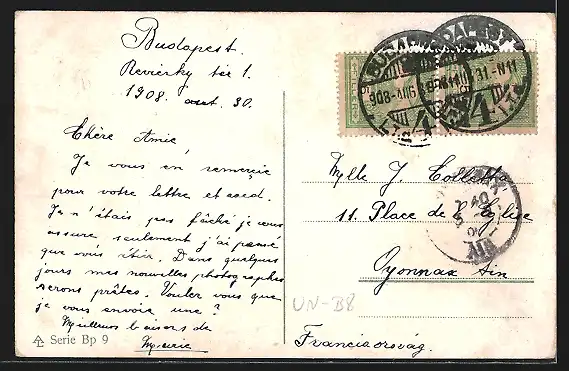 Budapest.
Reviczky tér 1.
1908. aout. 30.
Chère Amie
Je vous en remercie
pour votre lettre et card.
Je n'étais pas fâché je vous
assure, seulement j'ai pensé
que vous étiez. Dans quelques
jours mes nouvelles photographies
serons prêtes. Voulez vous que
je vous envoie une?
baisers de
Serie Bp 9
Mylle J. Collette
11. Place de la Eglise
Oyonnax Ain
UN-B8
Franciaország.